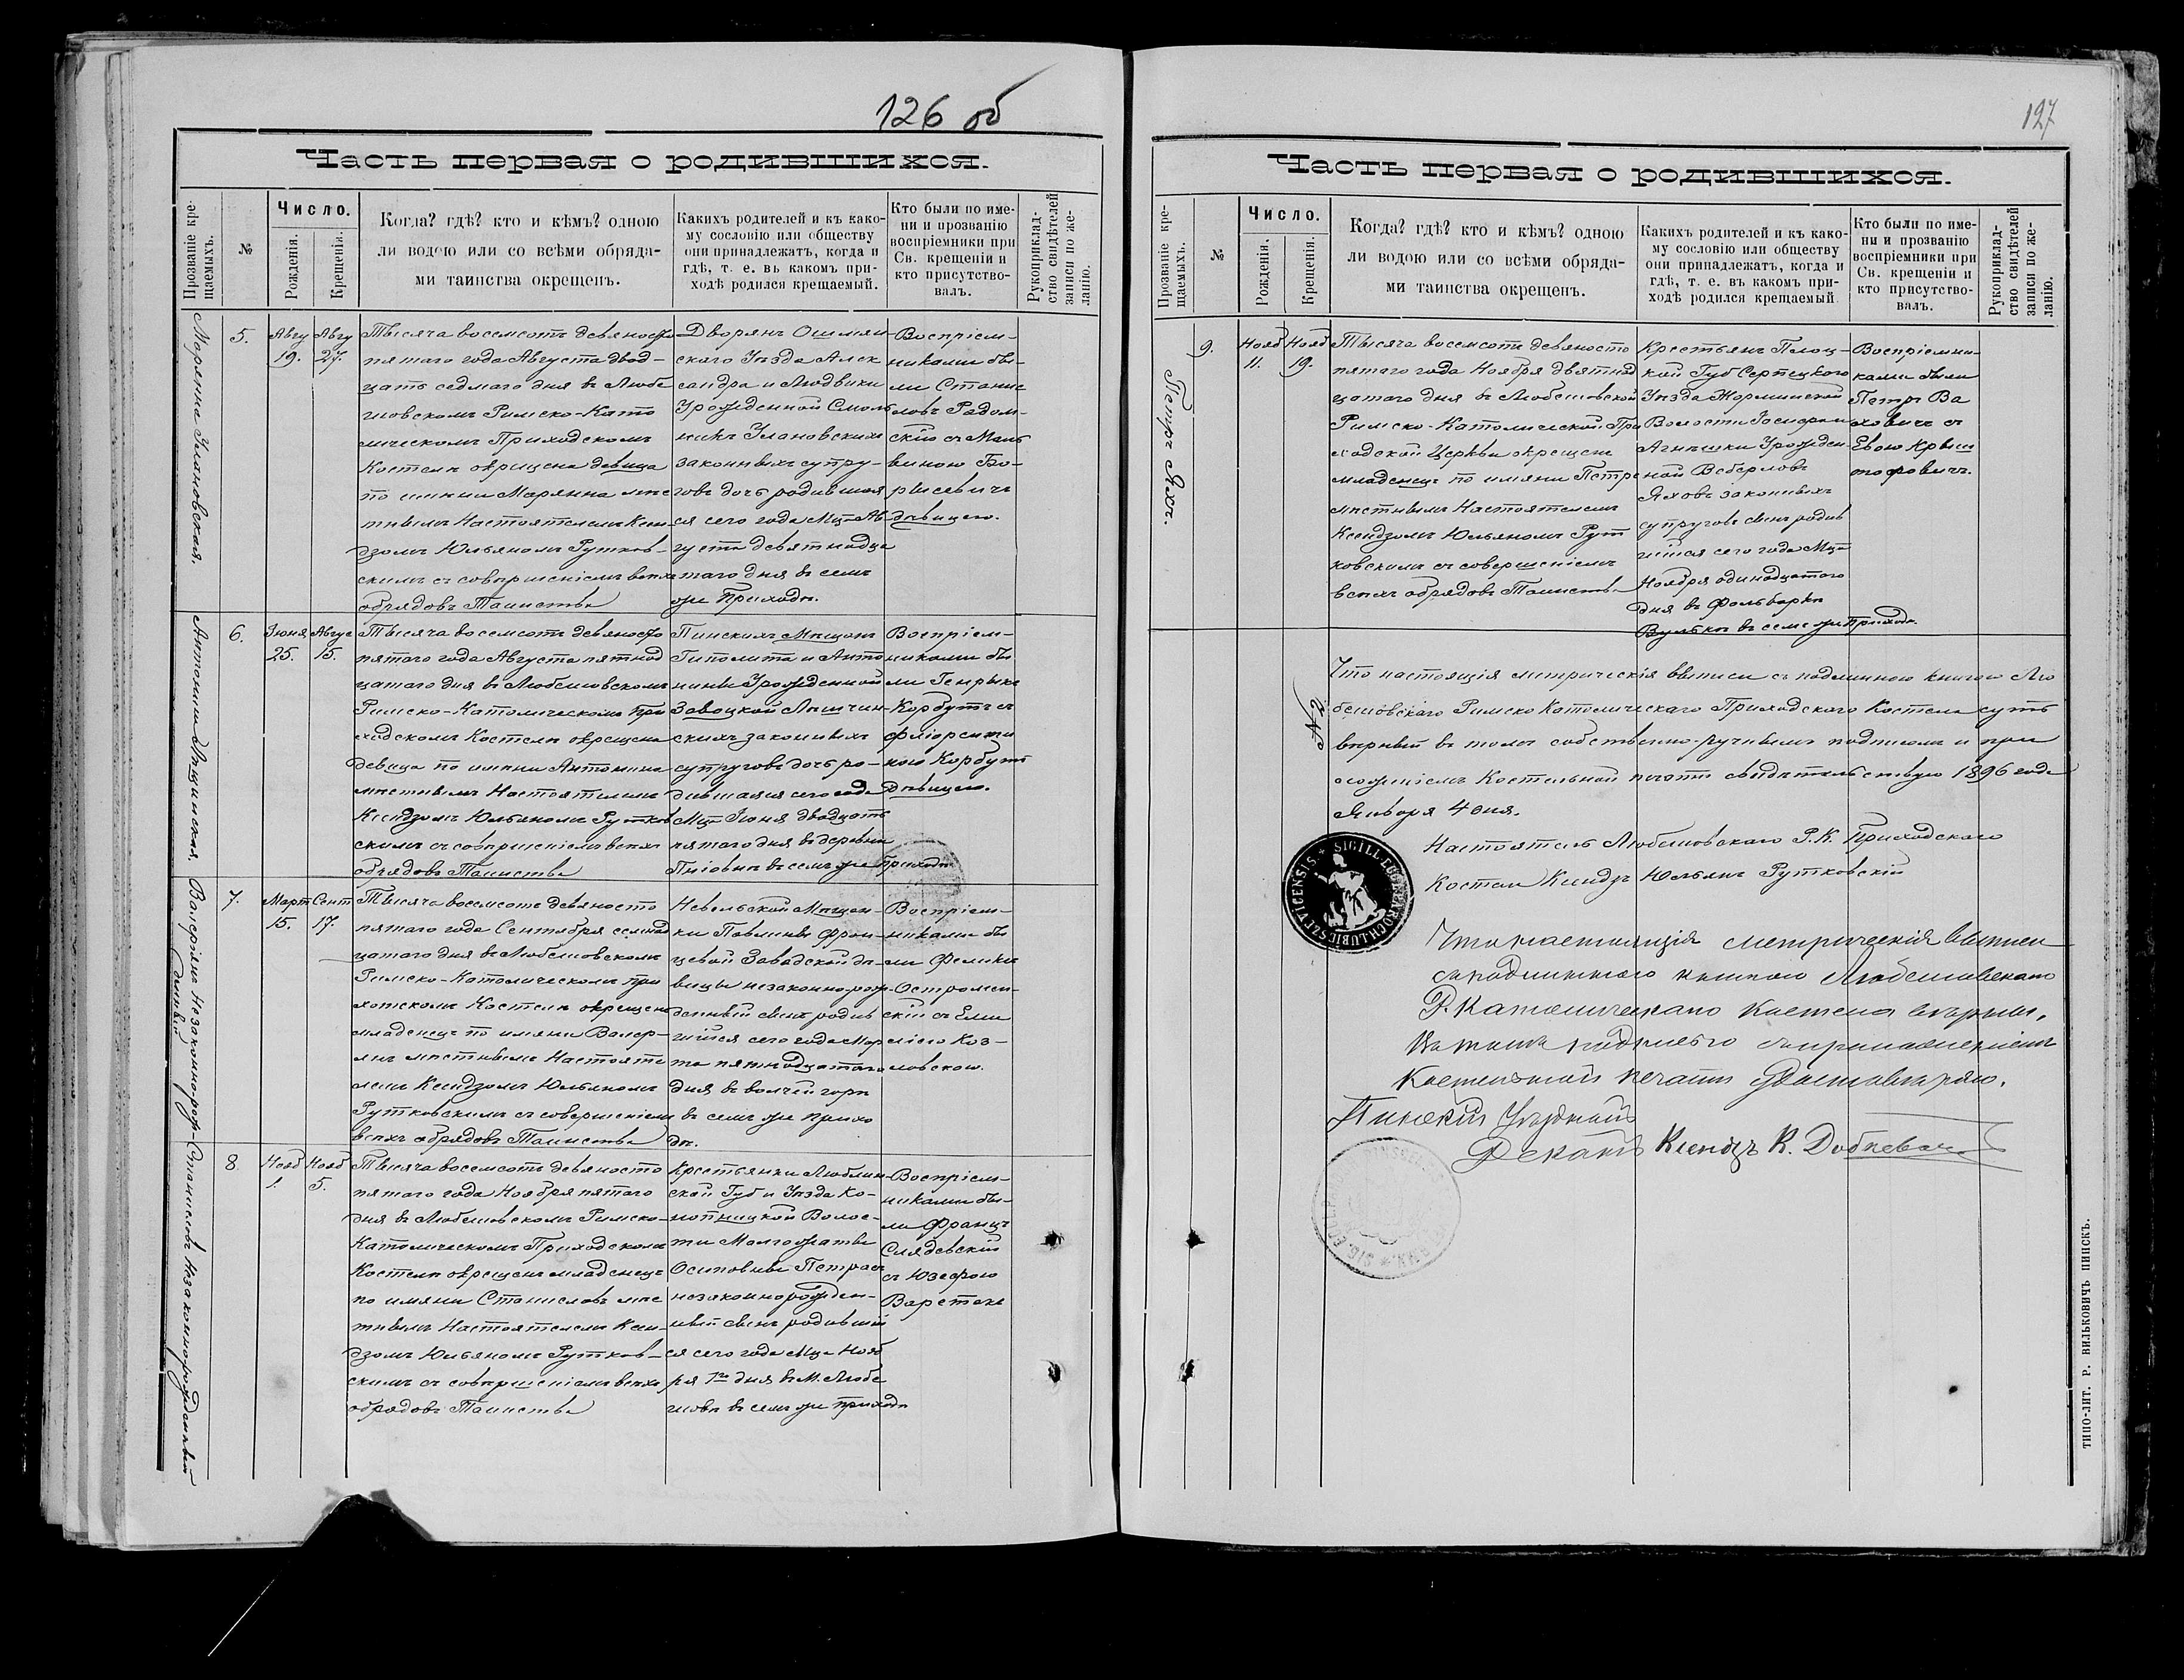 126 об
Часть первая о родившихся.
Прозваніе крещаемыхъ.
№
Число.
Рожденія.
Крещенія.
Когда? гдѣ? кто и кѣмъ? одною
ли водою или со всѣми обряда-
ми таинства окрещенъ.
Какихъ родителей и къ како-
му сословію или обществу
они принадлежатъ, когда и
гдѣ, т. е. въ какомъ при-
ходѣ родился крещаемый.
Кто были по име-
ни и прозванію
воспріемники при
Св. крещеніи и
кто присутство-
валъ.
Рукоприклад-
ство свидѣтелей
записи по же-
ланію.
Марянна Улановская.
5.
Авгу
19.
Авгу
27.
Тысяча восемсотъ девяносто
пятаго года Августа двад-
цать седмаго дня въ Любе
шовскомъ Римско-Като
лическомъ Приходскомъ
Костелѣ окрещена девица
по имени Марянна мѣс
тнымъ Настоятелемъ Ксен-
дзомъ Юльяномъ Рутков-
скимъ съ совершеніемъ всѣхъ
обрядовъ Таинства
Дворянъ Ошмян-
скаго Уѣзда Алек
сандра и Людвики
Урожденной Смоль
никъ Улановскихъ
законныхъ супру-
говъ дочь родившая
ся сего года Мца Ав-
густа девятнадца
таго дня въ семъ
же Приходѣ.
Воспріем-
никами бы-
ли Станис
ловъ Радом-
скій съ Маль
виною Бо-
рысевичъ
дѣвицею.
Антонина Лящинская
6.
Іюня
25.
Авгус
15.
Тысяча восемсотъ девяносто
пятаго года Августа пятнад
цатаго дня въ Любешовскомъ
Римско-Католическомъ При
ходскомъ Костелѣ окрещена
девица по имени Антонина
мѣстнымъ Настоятелемъ
Ксендзомъ Юльяномъ Рутков
скимъ съ совершеніемъ всѣхъ
обрядовъ Таинства
Пинскихъ Мѣщанъ
Гиполита и Анто
нины Урожденной
Завоцкой Лящин-
скихъ законныхъ
супруговъ дочь ро-
дившаяся сего года
Мца Іюня двадцать
пятаго дня въ деревни
Пніовнѣ въ семъ же Приходѣ
Воспріем-
никами бы
ли Генрыкъ
Корбутъ съ
Фліоренти
ною Корбутъ
Дѣвицею.
Валеріянъ Незаконно-рож-
денный
7.
Март
15.
Сент
17.
Тысяча восемсотъ девяносто
пятаго года Сентября семнад
цатаго дня въ Любешовскомъ
Римско-Католическомъ при
хотскомъ Костелѣ окрещенъ
младенецъ по имяни Валер-
янъ мѣстнымъ Настояте
лемъ Ксендзомъ Юльяномъ
Рутковскимъ съ совершеніемъ
всѣхъ обрядовъ Таинства
Невельской Мѣщан-
ки Павлины Фран-
цевой Завадской дѣ-
вицы незаконно-рож-
денный сынъ родив
шійся сего года Мар
та пятнадцатаго
дня въ волчей горѣ
въ семъ же прихо
дѣ.
Воспріем-
никами бы
ли Феликъ
Остромен-
скій съ Еми
ліею Коз-
ловскою.
Станиславъ Незаконнорожденный
8.
Нояб
1.
Нояб
5.
Тысяча восемсотъ девяносто
пятаго года Ноября пятаго
дня въ Любешовскомъ Римско-
Католическомъ Приходскомъ
Костелѣ окрещенъ младенецъ
по имяни Станиславъ мѣс
тнымъ Настоятелемъ Ксен-
дзомъ Юльяномъ Рутков-
скимъ съ совершеніемъ всѣхъ
обрядовъ Таинства
Крестьянки Люблин-
ской Губ и Уѣзда Ко-
нопницкой Волос-
ти Малгожаты
Осиповны Петрась
незаконнорожден-
ный сынъ родившій
ся сего года Мца Нояб
ря 1го дня въ М. Любе
шовѣ въ семъ же приходѣ
Воспріем-
никами бы-
ли Францъ
Слядевскій
съ Юзефою
127
Часть первая о родившихся.
Прозваніе крещаемыхъ.
№
Число.
Рожденія.
Крещенія.
Когда? гдѣ? кто и кѣмъ? одною
ли водою или со всѣми обряда-
ми таинства окрещенъ.
Какихъ родителей и къ како-
му сословію или обществу
они принадлежатъ, когда и
гдѣ, т. е. въ какомъ при-
ходѣ родился крещаемый
Кто были по име-
ни и прозванію
воспріемники при
Св. крещеніи и
кто присутство-
валъ.
Рукоприклад-
ство свидѣтелей
записи по же-
ланію.
Петръ Яхъ.
9.
Нояб
11.
Нояб
19.
Тысяча восемсотъ девяносто
пятаго года Ноября девятнад
цатаго дня въ Любешовской
Римско-Католической При
ходской Церквѣ окрещенъ
младенецъ по имяни Петръ
мѣстнымъ Настоятелемъ
Ксендзомъ Юльяномъ Рут
ковскимъ съ совершеніемъ
всѣхъ обрядовъ Таинства
Крестьянъ Плоц-
кой Губ Серпецкого
Уѣзда
Волости
Агнѣшки Урожден
ной
Яховъ законныхъ
супруговъ сынъ родив
шійся сего года Мца
Ноября одинадцатаго
дня въ Фольваркѣ
Вулькѣ въ семъ же Приходѣ.
Воспріемни-
ками были
Петръ Ва
ховичъ съ
Евою Крыш
тофовичъ.
Что настоящія метрическія выписи съ подлинною книгою Лю
бешовскаго Римско Католическаго Приходскаго Костела суть
вѣрный въ томъ собственно-ручнымъ подписомъ и при
ложеніемъ Костельной печати свидѣтельствую 1896 года
Января 4 дня.
Настоятель Любешовскаго Р. К. Приходскаго
Костела Ксендзъ Юльянъ Рутковскій
Что настоящія метрическія выписи
съ подлинною книгою Любешовскаго
Р. Католическаго Костела вѣрны,
въ томъ подписью съ приложеніемъ
Костельной печати удостовѣряю.
Пинскій Уѣздный
Деканъ Ксендзъ К. Добкевичъ
ТИПО-ЛИТ. Р. ВИЛЬКОВИЧЪ ПИНСКЪ.